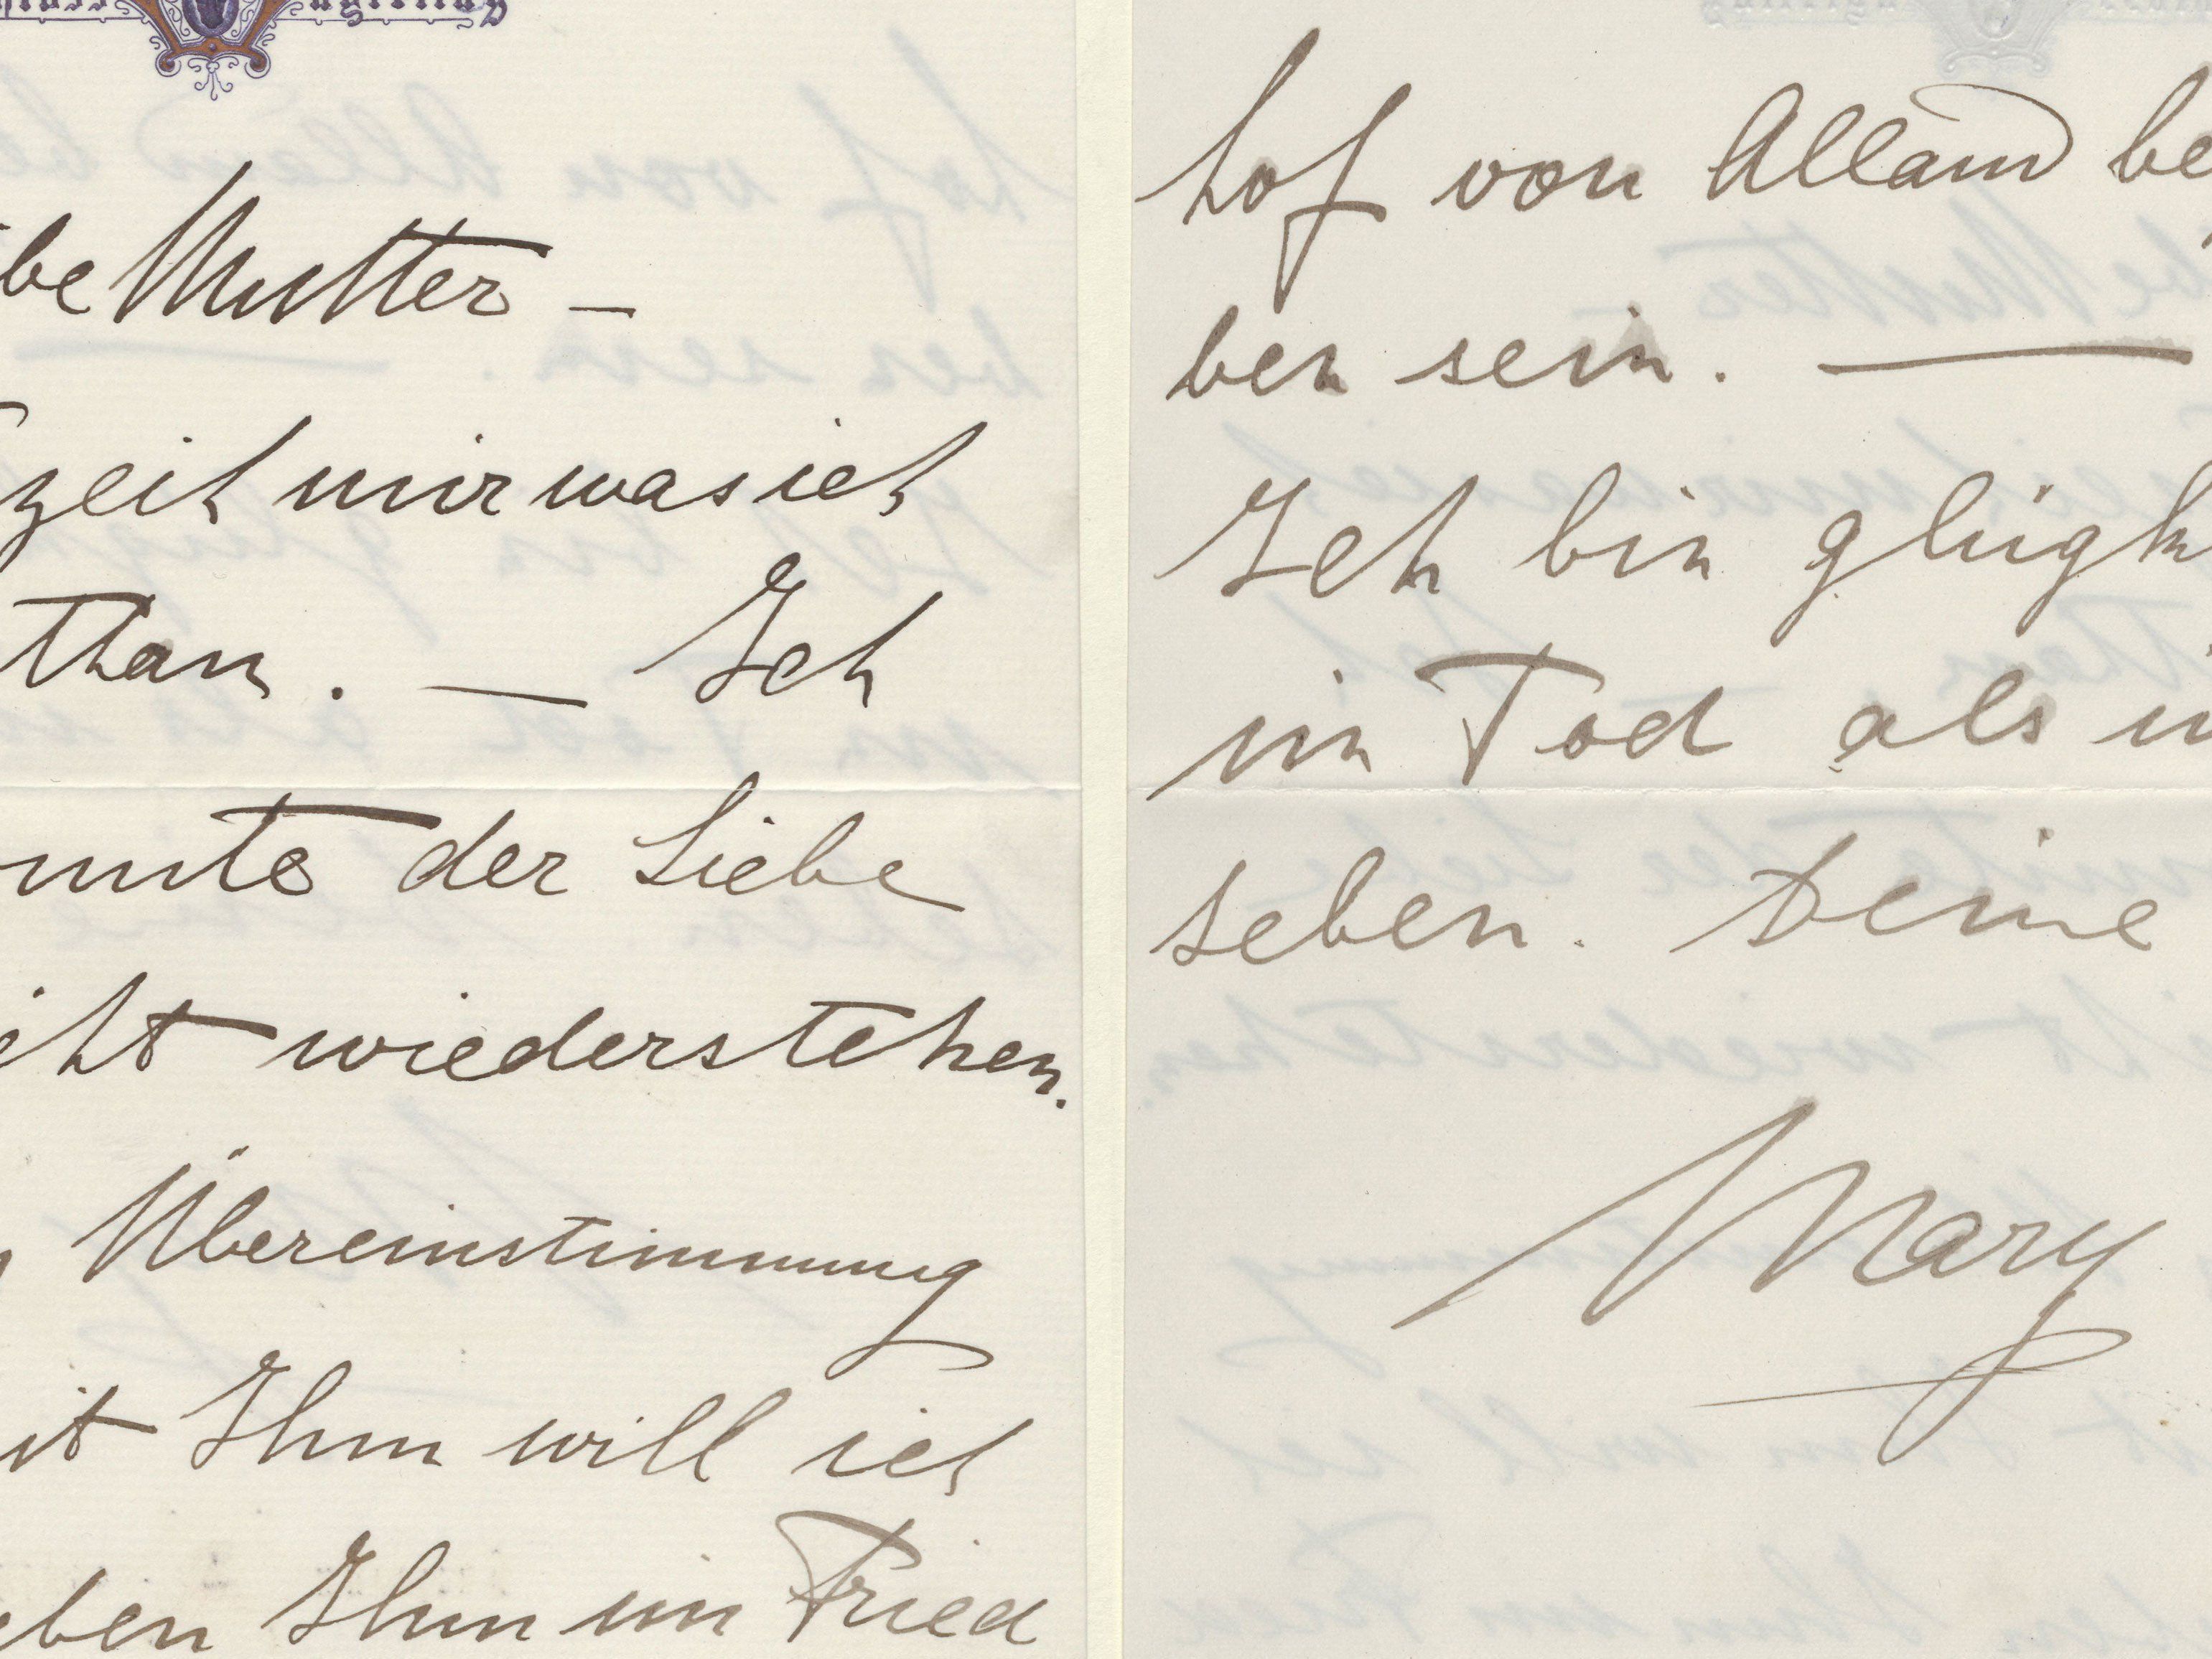 be Mutter –
zeih mir was ich
than. — Ich
nnte der Liebe
cht wiederstehen.
Übereinstimmung
it Ihm will ich
eben Ihm im Fried
hof von Alland be
ben sein. —
Ich bin glügk
im Tod als i
Leben. Deine
Mary